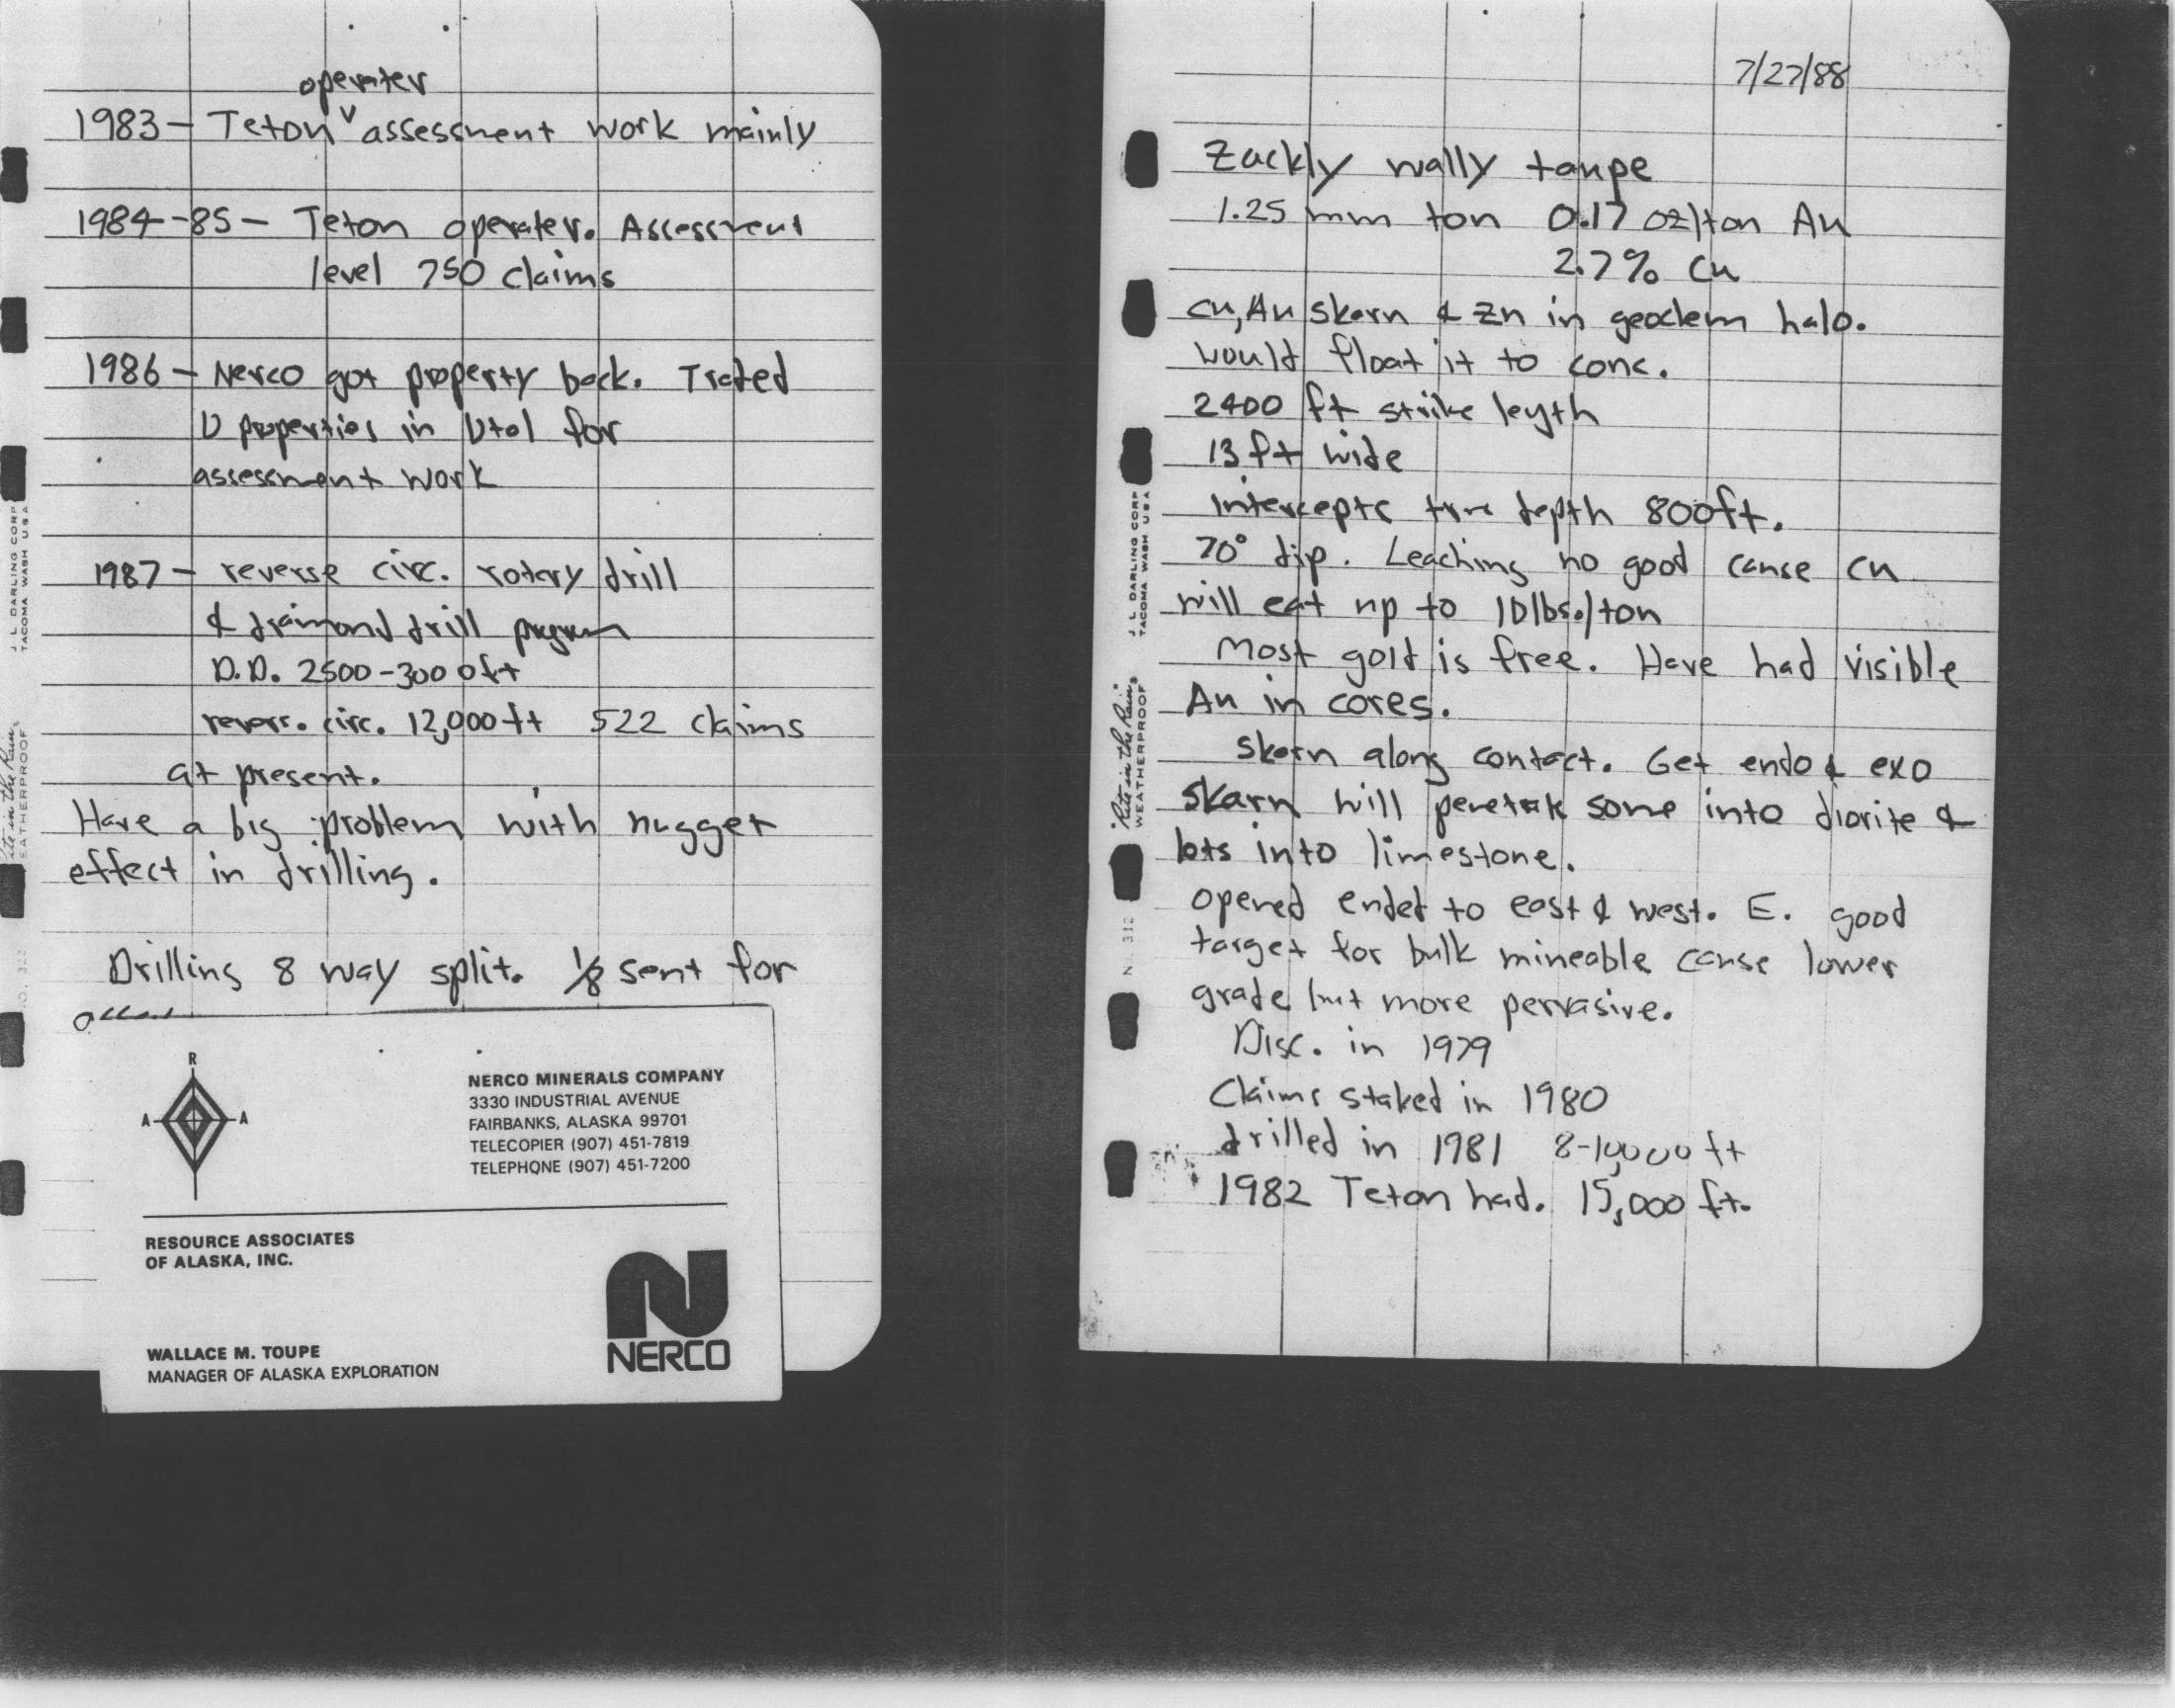 operater
1983 - Teton ˅ assessment work mainly
1984-85 - Teton operater. Assessment
level 750 claims
1986 - Nerco got property back. Traded
U properties in Utal for
assessment work
1987 - reverse circ. rotary drill
& diamond drill program
D.D. 2500-3000ft
revers. circ. 12,000ft 522 claims
at present.
Have a big problem with nugget
effect in drilling.
Drilling 8 way split. 1/8 sent for
J. L. DARLING CORP
TACOMA WASH USA
EATHERPROOF
R
A A
NERCO MINERALS COMPANY
3330 INDUSTRIAL AVENUE
FAIRBANKS, ALASKA 99701
TELECOPIER (907) 451-7819
TELEPHONE (907) 451-7200
RESOURCE ASSOCIATES
OF ALASKA, INC.
WALLACE M. TOUPE
MANAGER OF ALASKA EXPLORATION
N
NERCO
7/27/88
Zackly wally taupe
1.25 mm ton 0.17 oz/ton Au
2.7% Cu
Cu, Au skarn & Zn in geochem halo.
would float it to conc.
2400 ft strike leyth
13 ft wide
Intercepts true depth 800ft.
70° dip. Leaching no good cause cu
will eat up to 10lbs./ton
Most gold is free. Have had visible
Au in cores.
Skarn along contact. Get endo & exo
skarn will penetrate some into diorite &
lots into limestone.
opened ended to east & west. E. good
target for bulk mineable cause lower
grade but more pervasive.
Disc. in 1979
Claims staked in 1980
drilled in 1981 8-10,000 ft
1982 Teton had. 15,000 ft.
J. L. DARLING CORP
TACOMA WASH USA
"Rite in the Rain"
WEATHERPROOF
N. 312